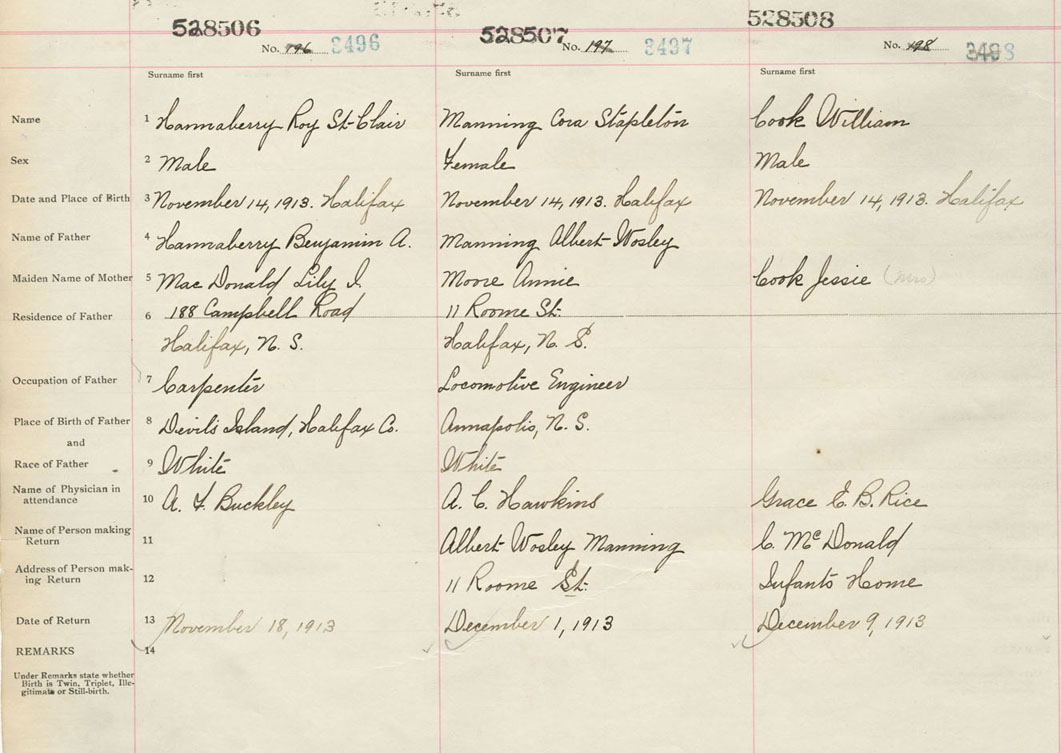 528506 528507 528508
No. 196 3496 No. 197 3497 No. 198 3498
Surname first Surname first Surname first
Name 1 Hannaberry Roy St. Clair Manning Cora Stapleton Cook William
Sex 2 Male Female Male
Date and Place of Birth 3 November 14, 1913. Halifax November 14, 1913. Halifax November 14, 1913. Halifax
Name of Father 4 Hannaberry Benjamin A. Manning Albert Wosley
Maiden Name of Mother 5 Mac Donald Lily I. Moore Annie Cook Jessie (Mrs)
Residence of Father 6 188 Campbell Road 11 Roome St.
Halifax, N. S. Halifax, N. S.
Occupation of Father 7 Carpenter Locomotive Engineer
Place of Birth of Father 8 Devil's Island, Halifax Co. Annapolis, N. S.
and
Race of Father 9 White White
Name of Physician in
attendance 10 A. F. Buckley A. C. Hawkins Grace E. B. Rice
Name of Person making
Return 11 Albert Wosley Manning C. McDonald
Address of Person mak-
ing Return 12 11 Roome St. Infants Home
Date of Return 13 November 18, 1913 December 1, 1913 December 9, 1913
REMARKS 14
Under Remarks state whether
Birth is Twin, Triplet, Ille-
gitimate or Still-birth.